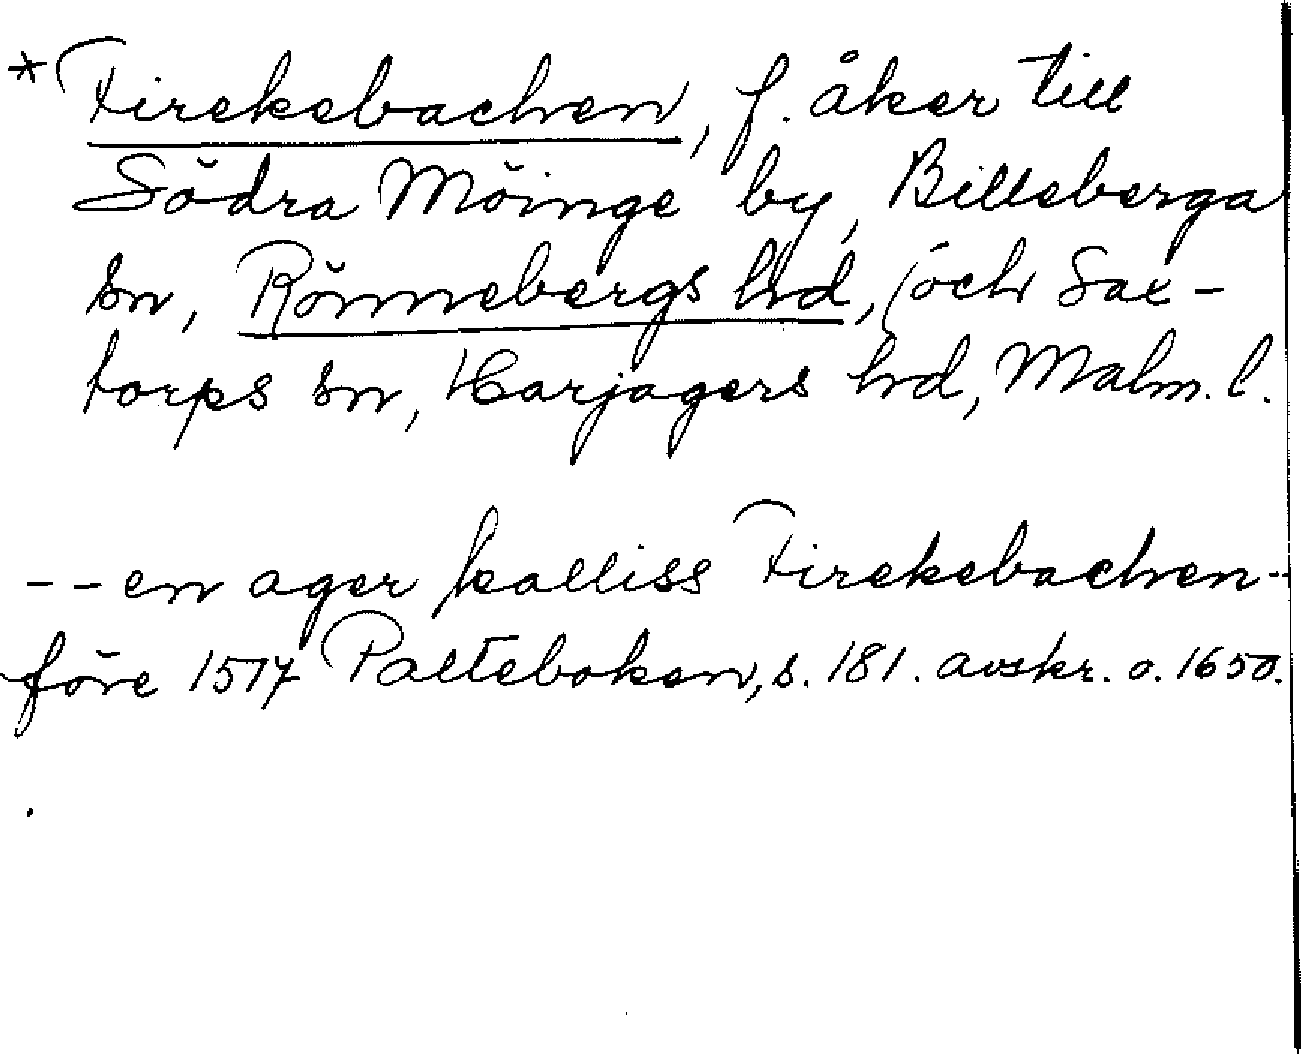 *Firekebachen, f. åker till
Södra Möinge by, Billeberga
sn, Rönnebergs hd, (och Sax-
torps sn, Harjagers hd, Malm. l.
-- en ager kalliss Firekebachen --
före 1517 Palteboken, s. 181. avskr. o. 1650.